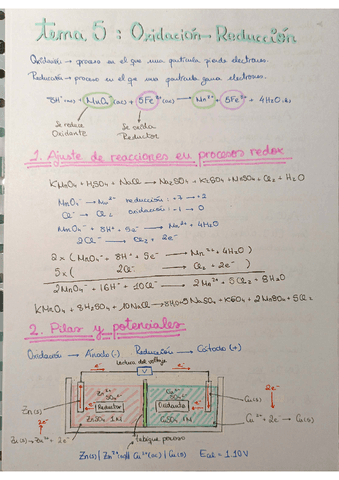 Tema 5 : Oxidación - Reducción
Oxidación → proceso en el que una partícula pierde electrones.
Reducción → proceso en el que una partícula gana electrones.
8H⁺(ac) + MnO₄⁻(ac) + 5Fe²⁺(ac) → Mn²⁺ + 5Fe³⁺ + 4H₂O(l)
Se reduce Se oxida
Oxidante Reductor
1. Ajuste de reacciones en procesos redox
KMnO₄ + H₂SO₄ + NaCl → Na₂SO₄ + K₂SO₄ + MnSO₄ + Cl₂ + H₂O
MnO₄⁻ → Mn²⁺ reducción : +7 → 2
Cl⁻ → Cl₂ oxidación : -1 → 0
MnO₄⁻ + 8H⁺ + 5e⁻ → Mn²⁺ + 4H₂O
2Cl⁻ → Cl₂ + 2e⁻
2 x ( MnO₄⁻ + 8H⁺ + 5e⁻ → Mn²⁺ + 4H₂O )
5 x ( 2Cl⁻ → Cl₂ + 2e⁻ )
2MnO₄⁻ + 16H⁺ + 10Cl⁻ → 2Mn²⁺ + 5Cl₂ + 8H₂O
KMnO₄ + 8H₂SO₄ + 10NaCl → 8H₂O + 5Na₂SO₄ + K₂SO₄ + 2MnSO₄ + 5Cl₂
2. Pilas y potenciales
Oxidación → Ánodo (-) Reducción → Cátodo (+)
Lectura del voltaje
e⁻ V e⁻
Zn²⁺ Cu²⁺
SO₄²⁻ SO₄²⁻
Zn(s) Reductor Oxidante Cu(s)
2e⁻
ZnSO₄ 1M CuSO₄ 1M
Zn(s) → Zn²⁺ + 2e⁻ tabique poroso Cu²⁺ + 2e⁻ → Cu(s)
Zn(s) | Zn²⁺(ac) || Cu²⁺(ac) | Cu(s) Ecel = 1.10V